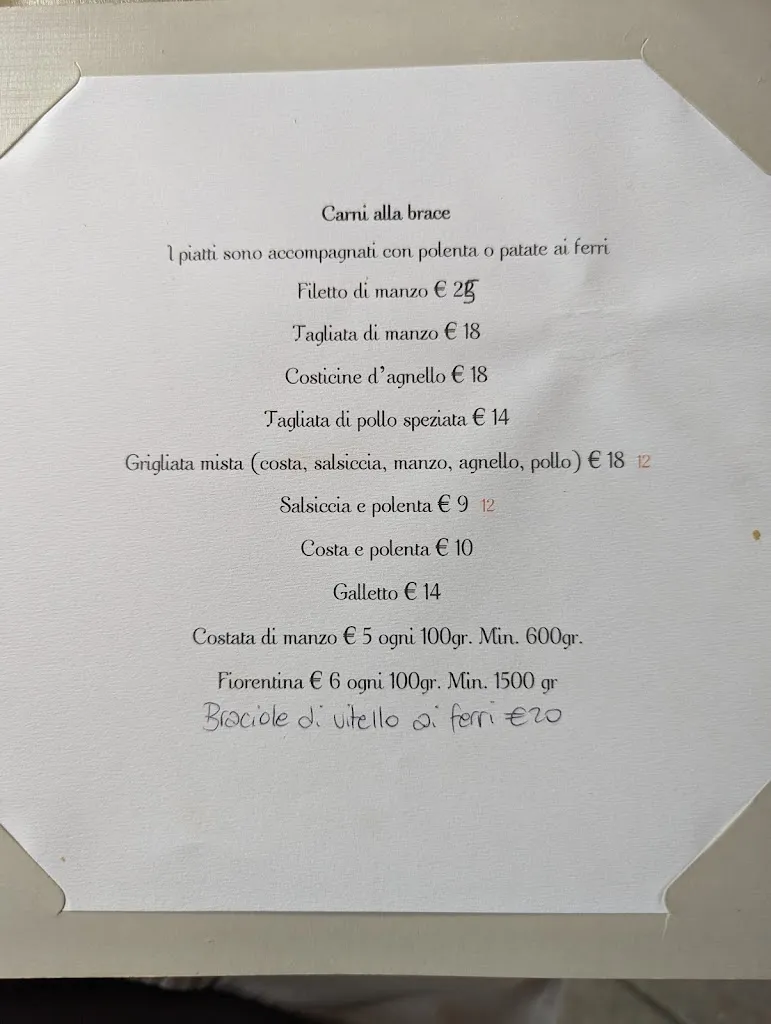 Carni alla brace
I piatti sono accompagnati con polenta o patate ai ferri
Filetto di manzo € 25
Tagliata di manzo € 18
Costicine d'agnello € 18
Tagliata di pollo speziata € 14
Grigliata mista (costa, salsiccia, manzo, agnello, pollo) € 18 12
Salsiccia e polenta € 9 12
Costa e polenta € 10
Galletto € 14
Costata di manzo € 5 ogni 100gr. Min. 600gr.
Fiorentina € 6 ogni 100gr. Min. 1500 gr
Braciole di vitello ai ferri €20